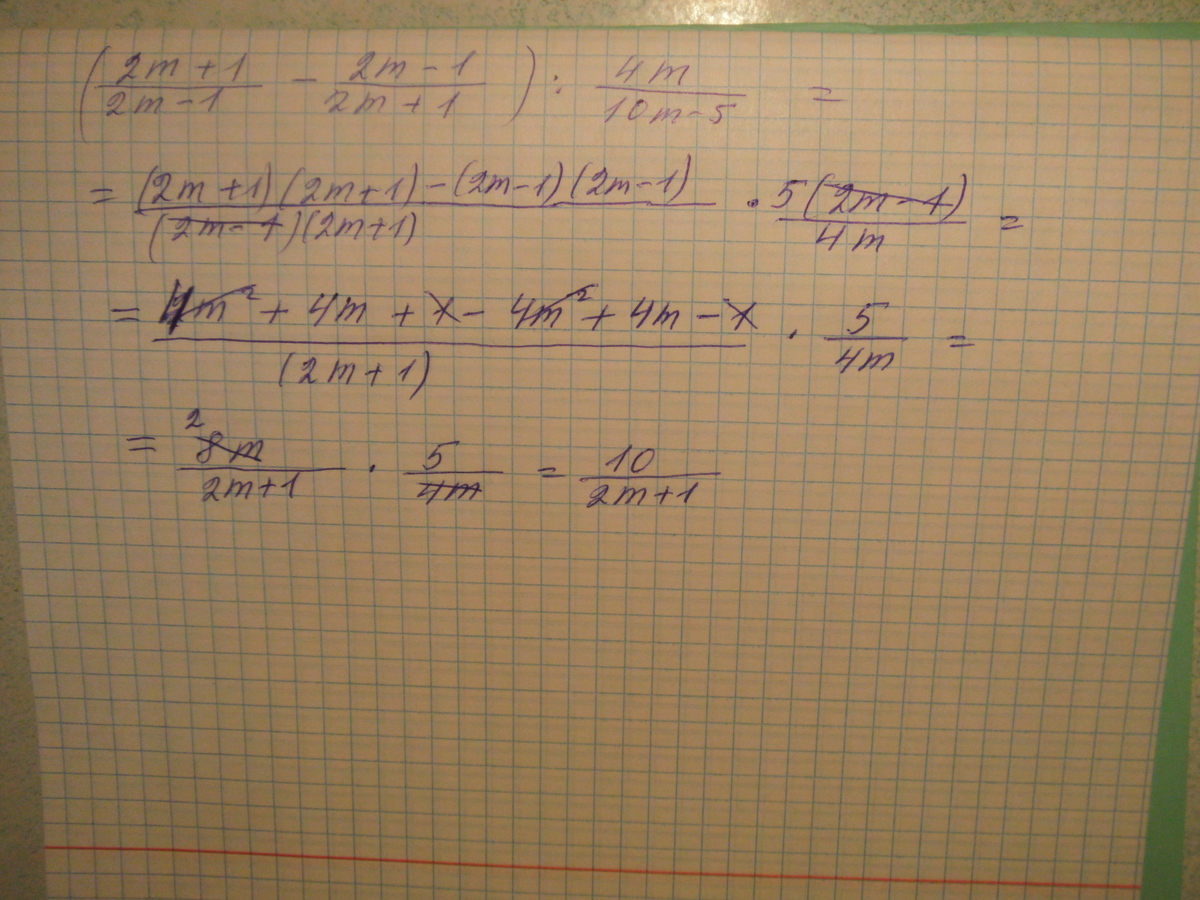 (2m+1/2m-1 - 2m-1/2m+1) : 4m/10m-5 =
= (2m+1)(2m+1)-(2m-1)(2m-1)/(2m-1)(2m+1) · 5(2m-1)/4m =
= 4m²+4m+1-4m²+4m-1/(2m+1) · 5/4m =
= 2 8m/2m+1 · 5/4m = 10/2m+1